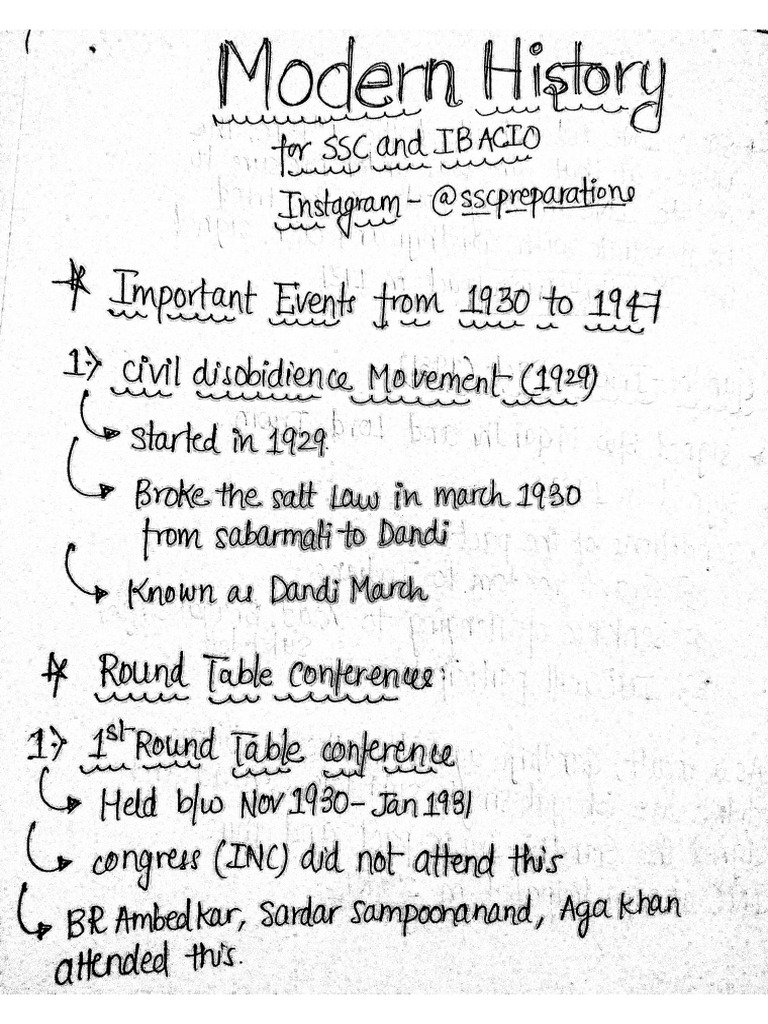 Modern History
for SSC and IB ACIO
Instagram - @sscpreparatione
* Important Events from 1930 to 1947
1.) civil disobidience Movement (1929)
started in 1929.
Broke the salt Law in march 1930
from sabarmati to Dandi
Known as Dandi March
* Round Table conferences
1.) 1st Round Table conference
Held b/w Nov 1930 - Jan 1931
congress (INC) did not attend this
BR Ambedkar, Sardar Sampooranand, Aga Khan
attended this.